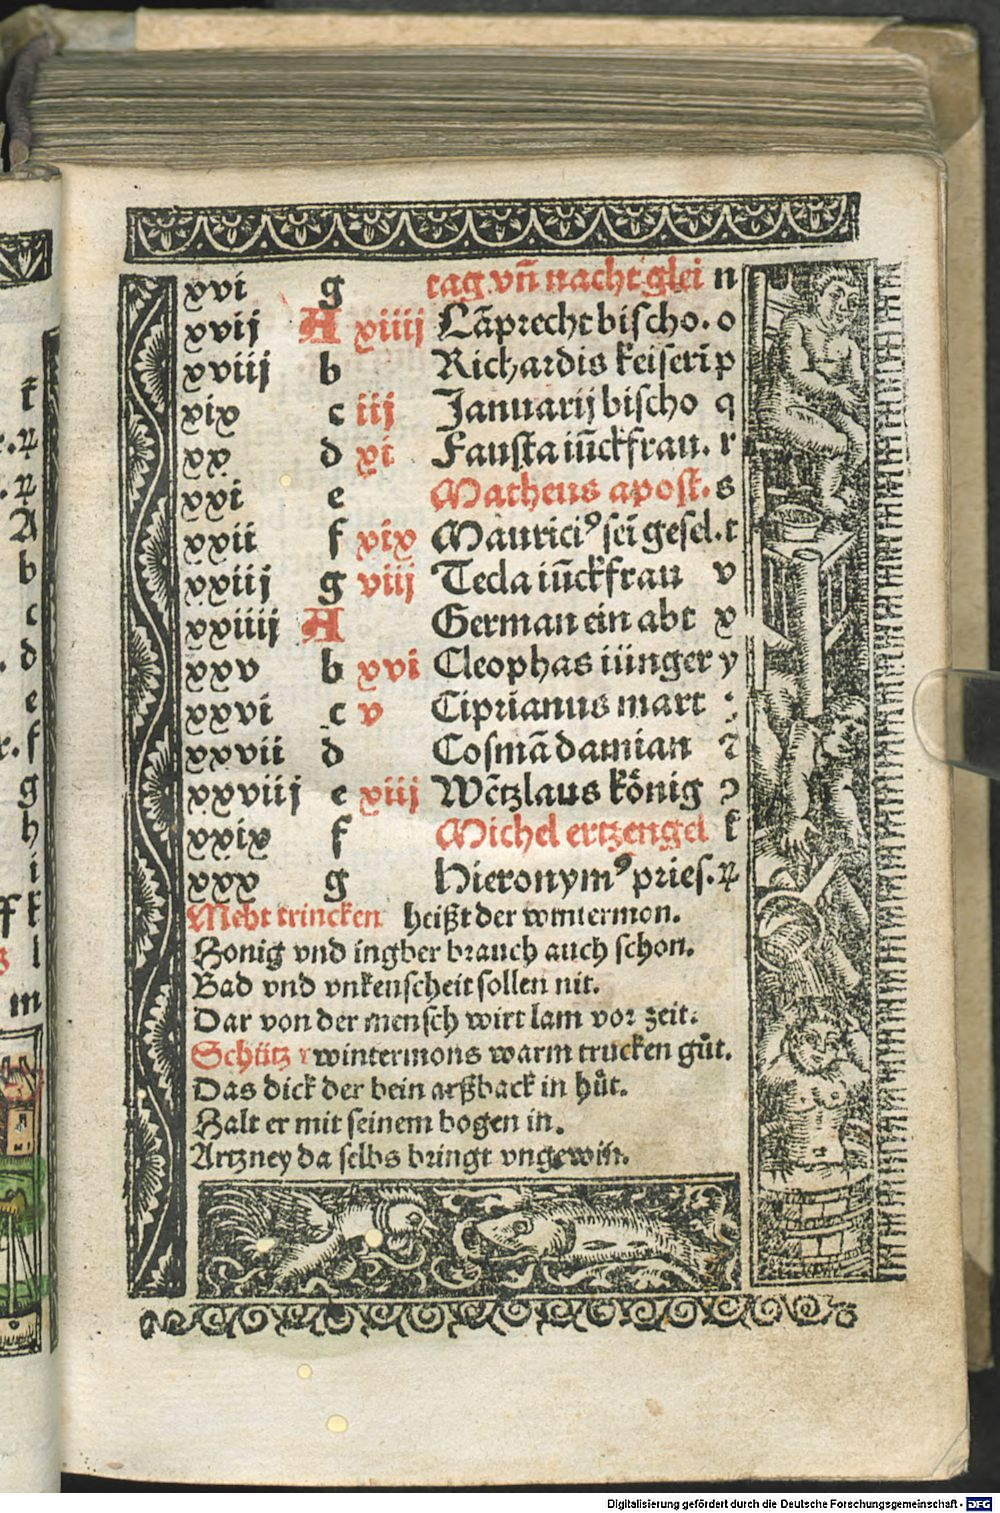 xvi g tag vñ nacht glei n
xvij A xiiij Lāprecht bischo. o
xviij b Richardis keiserī p
xix c iij Januarij bischo q
xx d xi Fausta iūckfrau. r
xxi e Matheus apost. s
xxii f xix Maurici⁹ sei gesel. t
xxiij g viij Tecla iūckfrau v
xxiiij A German ein abt x
xxv b xvi Cleophas iünger y
xxvi c v Ciprianus mart
xxvii d Cosmā damian
xxviij e xiij Wētzlaus könig
xxix f Michel ertzengel k
xxx g Hieronym⁹ pries. ꝝ
Meht trincken heißt der wintermon.
Honig vnd ingber brauch auch schon.
Bad vnd vnkenscheit sollen nit.
Dar von der mensch wirt lam vor zeit.
Schütz wintermons warm trucken gůt.
Das dick der bein arßback in hůt.
Halt er mit seinem bogen in.
Artzney da selbs bringt vngewiñ.
Digitalisierung gefördert durch die Deutsche Forschungsgemeinschaft - DFG